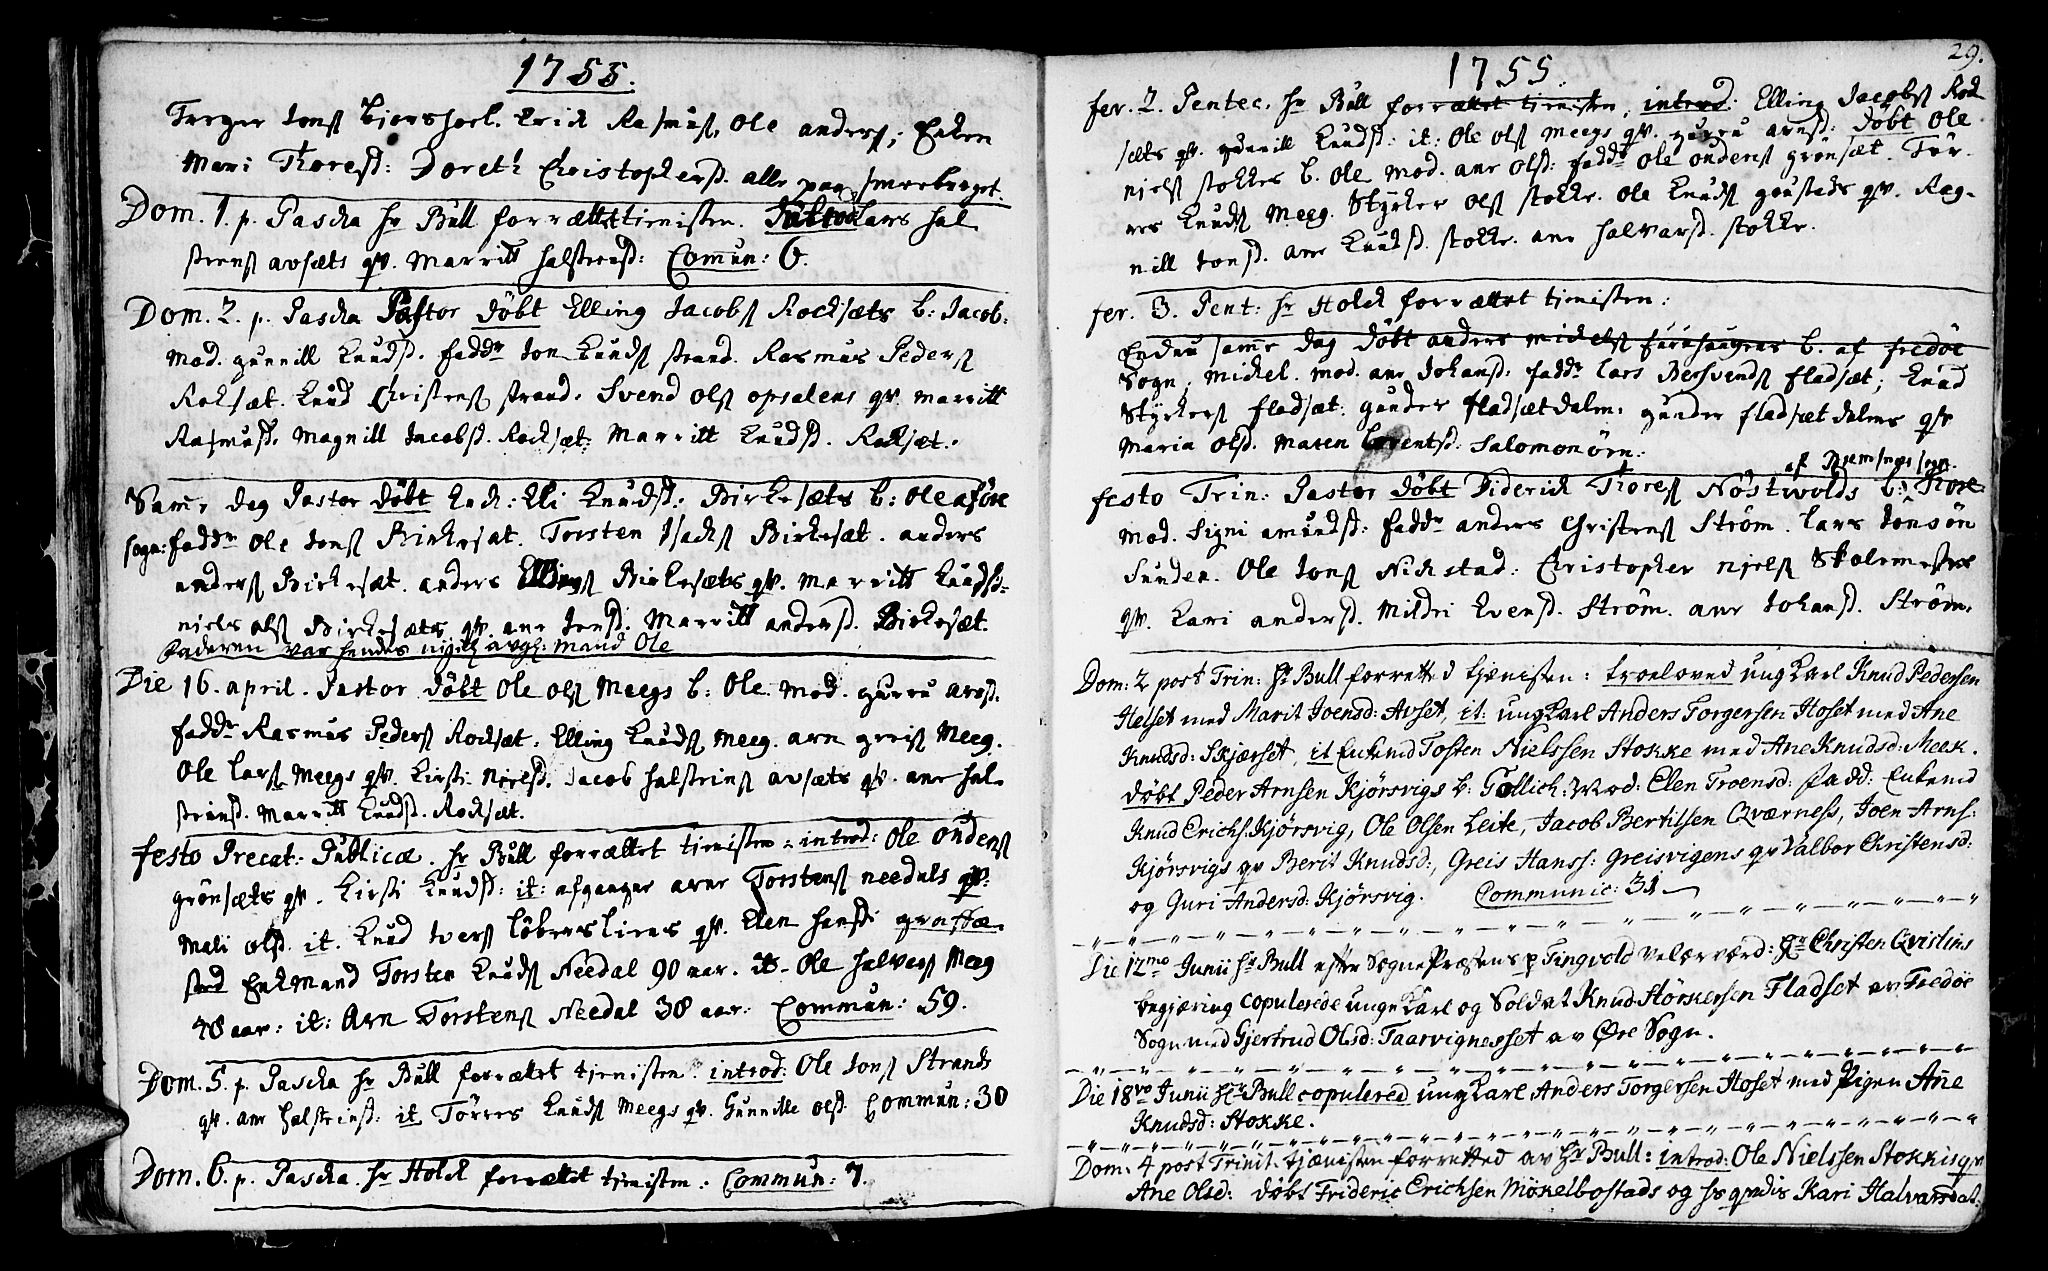 1755.
Torger Jons Biørshoel. Erich Rasmus, Ole anders; Enken
Mari Thoresd: Doreth Christophersd. alle paa smørberget.
Dom. 1. p. Pascha hr Bull forrættet tienisten. Introd Lars Hal
steens avsæts qv. Marritt halsteensd: Commun: 6.
Dom. 2. p. Pascha Pastor döbt Elling Jacobs Rocksæts b: Jacob:
Mod. gunnill Knudsd. fadd Jon Knuds strand. Rasmus Peders
Roksæt. Knud Christens strand. Svend ols opsalens qv marritt
Rasmusd. Magnill Jacobsd. Rocksæt: Marritt Knudsd. Rocksæt.
Samme dag Pastor döbt Enk: Eli Knudsd: Birkesæts b: Ole af öre
sogn: fadd Ole Jons Birkesæt. Torsten Isachs Birkesæt. anders
anders Birkesæt. anders Ellings Birkesæts qv. marritt Knudsd.
niels ols Birkesæts qv. ane Jonsd. Marritt andersd. Birkesæt.
Faderen var hendes nylig avg: mand Ole
Die 16. april. Pastor döbt Ole ols Meegs b: Ole. mod. gurru arnsd.
fadd Rasmus Peders Rocksæt. Elling Knuds Meeg. arn greis Meeg.
Ole Lars Meegs qv. Kirsti Nielsd. Jacob halsteins avsæts qv. ane hal
steinsd. Marritt Knudsd. Rocksæt.
festo Precat: Publicæ. hr Bull forrættet tienisten: introd: Ole ondens
grönsæts qv. Kirsti Knudsd: it: afganger arne Torstens needals qv.
Mali olsd. it. Knud Ivers löbersliens qv. Elen hansd: graffæ
sted Enkemand Torsten Knuds Needal 90 aar. it. Ole halvors Meeg
48 aar: it: Arn Torstens Needal 38 aar: Commun: 59.
Dom. 5. p. Pascha hr Bull forrættet tienisten. introd: Ole Jons Strands
qv. ane halsteinsd: it Törres Knuds Meegs qv. Gunnille olsd. Commun: 30
Dom. 6. p. Pascha. hr Holck forrættet tienisten: Commun: 7.
1755.
29.
fer. 2. Pentec. hr Bull forrættet tienisten, introd: Elling Jacobs Rock
sæts qv. gunnill Knudsd: it: Ole ols Meegs qv. gurru arnsd: döbt Ole
niels stokkes b. Ole mod. ane olsd: fadd Ole ondens grönsæt. Tör
res Knuds Meeg. Styrker ols stokke. Ole Knuds goustads qv. Rag-
nill Jonsd. ane Knudsd. stokke. ane halvarsd. stokke.
fer. 3. Pent: hr Holck forrættet tienisten:
Endnu samme dag döbt anders mickels furuhaugens b. af fredöe
Sogn. Mickel. mod. ane Johansd: fadd lars Bersvends fladsæt; Knud
Styrkers fladsæt. gunder fladsætdalen. gunder fladsætdalens qv
Maria olsd. Maren Berentsd. Salomonörn.
festo Trin: Pastor döbt Diderich Thores Nöstwolds b: Thore af Bremsnæs sogn.
mod. Signi amundsd: fadd anders Christens Ström. Lars Jonsön
Sunden. Ole Jons Nichstad: Christopher niels Skolemester
qv. Kari andersd. Mildri Evensd. Ström. ane Johansd. Ström.
Dom: 2 post Trin: Hr Bull forretted tjænisten: troeloved ung Karl Knud Pedersen
Helset med Marit Joensd: Avset, it: ung Karl Anders Torgersen Hoset med Ane
Knudsd: Skjærset, it Enkemd Tosten Nielssen Stokke med Ane Knudsd: Meek.
döbt Peder Arnsen Kjörsvigs b: Gollich: Mod: Elen Troensd: Fadd: Enkemd
Knud Erichs: Kjörsvig, Ole Olsen Leite, Jacob Bertilsen Qværness, Joen Arns:
Kjörsvigs qv Berit Knudsd:, Greis Hanss: Greisvigens qv Valbor Christensd:
og Guri Andersd: Kjörsvig. Communic: 31
Die 12mo Junii hr Bull efter Sogne Præstens p Tingvold Velærværd: Hr Christen Qvislins
begjæring copulerede unge Karl og Soldat Knud Störkersen Fladset av Fredöe
Sogn med Gjertrud Olsd: Taarvignesset av Øre Sogn.
Die 18vo Junii hr Bull copulered ung Karl Anders Torgersen Hoset med Pigen Ane
Knudsd: Stokke.
Dom. 4 post Trinit. tjænisten forretted av hr Bull: introd: Ole Nielssen Stokkis qv
Ane Olsd: döbt Frideric Erichsen Mökelbostads og hs qvindis Kari Halvarsdat: